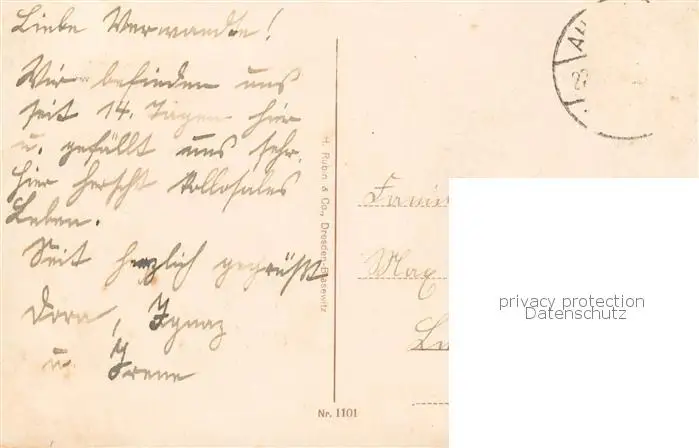 Liebe Verwandte!
Wir befinden uns
seit 14. Tagen hier
u. gefällt uns sehr.
hier herscht kollosales
Leben.
Seit herzlich gegrüßt
Dora, Ignaz
u. Irene
H. Rubin & Co., Dresden-Blasewitz
Nr. 1101
Famil
Max
privacy protection
Datenschutz